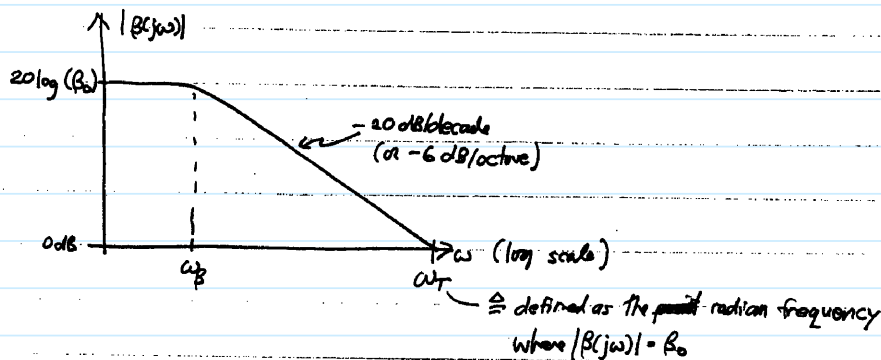 |β(jω)|
20log(β₀)
-20 dB/decade
(or -6 dB/octave)
0dB
ω (log scale)
ω_β
ω_T
≜ defined as the radian frequency
where |β(jω)| = β₀